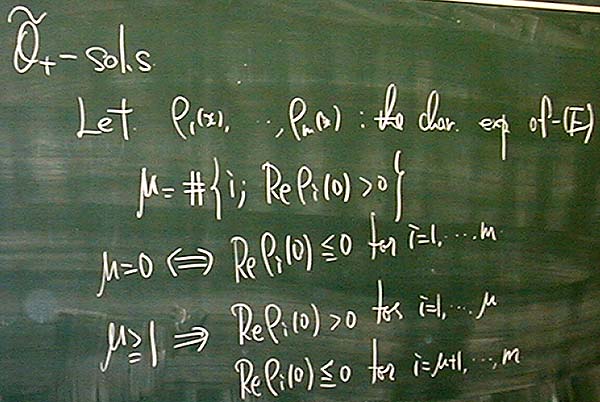 Õ₊-sols
Let ρ₁(x), ⋯, ρₘ(x) : the char. exp of (E)
μ = #{i; Re ρᵢ(0) > 0}
μ=0 ⟺ Re ρᵢ(0) ≦ 0 for i=1, ⋯ m
μ≧1 ⟹ Re ρᵢ(0) > 0 for i=1, ⋯ μ
Re ρᵢ(0) ≦ 0 for i=μ+1, ⋯, m